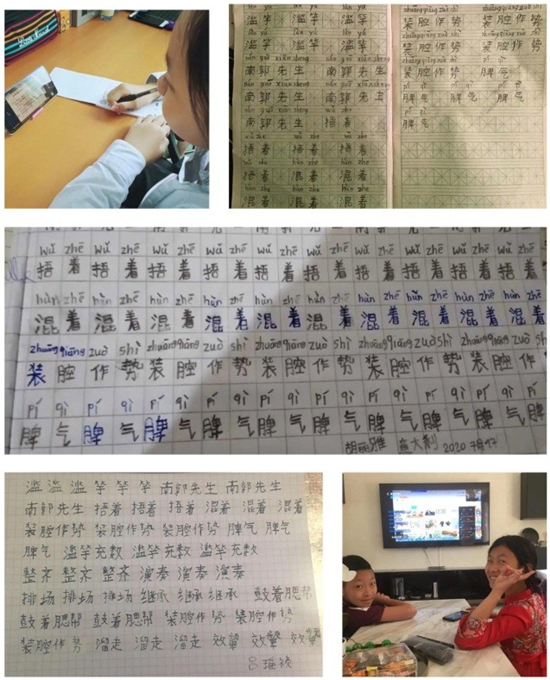 滥竽 滥竽 滥竽
滥竽 滥竽 滥竽
南郭先生 南郭先生
南郭先生 南郭先生
南郭先生 捂着
捂着 捂着 捂着
捂着 捂着 捂着
混着 混着 混着
混着 混着 混着
装腔作势 装腔作势
装腔作势 装腔作势
装腔作势 脾气
脾气 脾气 脾气
脾气
wǔ zhē wǔ zhē wǔ zhē wǔ zhē wǔ zhē wǔ zhē wǔ zhē wǔ zhē
捂着捂着捂着捂着捂着捂着捂着捂着
hùn zhē hùn zhē hùn zhē hùn zhē hùn zhē hùn zhē hùn zhē hùn zhē
混着混着混着混着混着混着混着混着
zhuāng qiāng zuò shì zhuāng qiāng zuò shì zhuāng qiāng zuò shì zhuāng qiāng zuò shì
装腔作势装腔作势装腔作势装腔作势
pí qì pí qì pí qì pí qì pí qì pí qì pí qì pí qì
脾气脾气脾气脾气脾气脾气脾气脾气
意大利 2020 7月17
滥 滥 滥 竽 竽 竽 南郭先生 南郭先生
南郭先生 捂着 捂着 捂着 混着 混着 混着
装腔作势 装腔作势 装腔作势 脾气 脾气
脾气 滥竽充数 滥竽充数 滥竽充数
整齐 整齐 整齐 演奏 演奏 演奏
排场 排场 排场 继承 继承 继承 鼓着腮帮
鼓着腮帮 鼓着腮帮 装腔作势 装腔作势
装腔作势 溜走 溜走 溜走 效颦 效颦 效颦